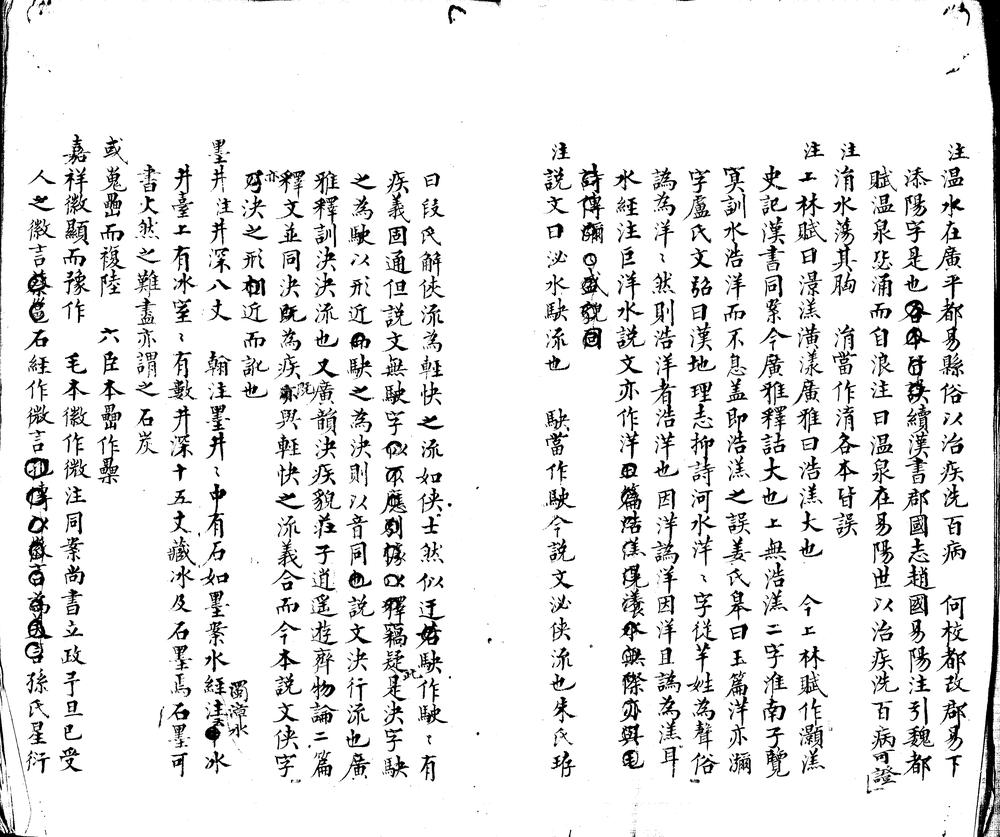 注温水在廣平都易縣俗以治疾洗百病　何校都改郡易下
添陽字是也續漢書郡國志趙國易陽注引魏都
賦温泉毖涌而自浪注曰温泉在易陽世以治疾洗百病可證
注淯水蕩其胸　淯當作淯各本皆誤
注上林賦曰澋溔潢漾廣雅曰浩溔大也　今上林賦作灝溔
史記漢書同案今廣雅釋詁大也上無浩溔二字淮南子覽
冥訓水浩洋而不息盖即浩溔之誤姜氏皋曰玉篇洋亦瀰
字盧氏文弨曰漢地理志抑詩河水洋〻字從芉姓為聲俗
譌為洋〻然則浩洋者浩洋也因洋譌洋因洋且譌為溔耳
水經注巨洋水說文亦作洋
注說文曰泌水駃流也　駃當作駛今說文泌俠流也朱氏珔
曰段氏解俠流為輕快之流如俠士然似迂若駃作駛〻有
疾義固通但說文無駛字竊疑是決字駃
之為駛以形近駃之為決則以音同說文決行流也廣
雅釋訓決決流也又廣韻決疾貌莊子逍遥遊齊物論二篇
釋文並同決既為疾既與輕快之流義合而今本說文俠字
亦決之形相近而訛也
墨井注井深八丈　翰注墨井〻中有石如墨案水經注濁漳水冰
井臺上有冰室〻有數井深十五丈藏冰及石墨焉石墨可
書火然之難盡亦謂之石炭
或嵬罍而複陸　六臣本罍作櫐
嘉祥徽顯而豫作　毛本徽作微注同案尚書立政予旦已受
人之徽言石經作微言孫氏星衍